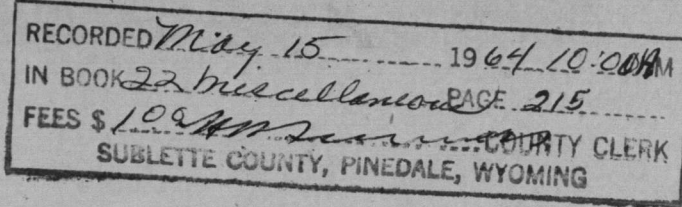 RECORDED May 15 1964 10:00AM
IN BOOK 22 Miscellaneous PAGE 215
FEES $1.00 COUNTY CLERK
SUBLETTE COUNTY, PINEDALE, WYOMING